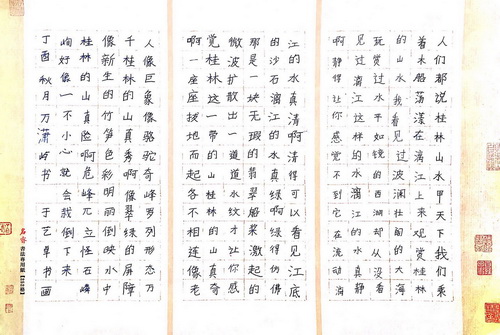 人们都说桂林山水甲天下我们乘
着木船荡漾在漓江上来观赏桂林
的山水我看见过波澜壮阔的大海
玩赏过水平如镜的西湖却从没看
见过漓江这样的水漓江的水真静
啊静得让你感觉不到它在流动漓
江的水真清啊清得可以看见江底
的沙石漓江的水真绿啊绿得仿佛
那是一块无瑕的翡翠船桨激起的
微波扩散出一道道水纹才让你感
觉桂林这一带的山桂林的山真奇
啊一座座拔地而起各不相连像老
人像巨象像骆驼奇峰罗列形态万
千桂林的山真秀啊像翠绿的屏障
像新生的竹笋色彩明丽倒映水中
桂林的山真险啊危峰兀立怪石嶙
峋好像一不小心就会栽倒下来
丁酉秋月万潇屿书 于艺草书画
書法專用紙